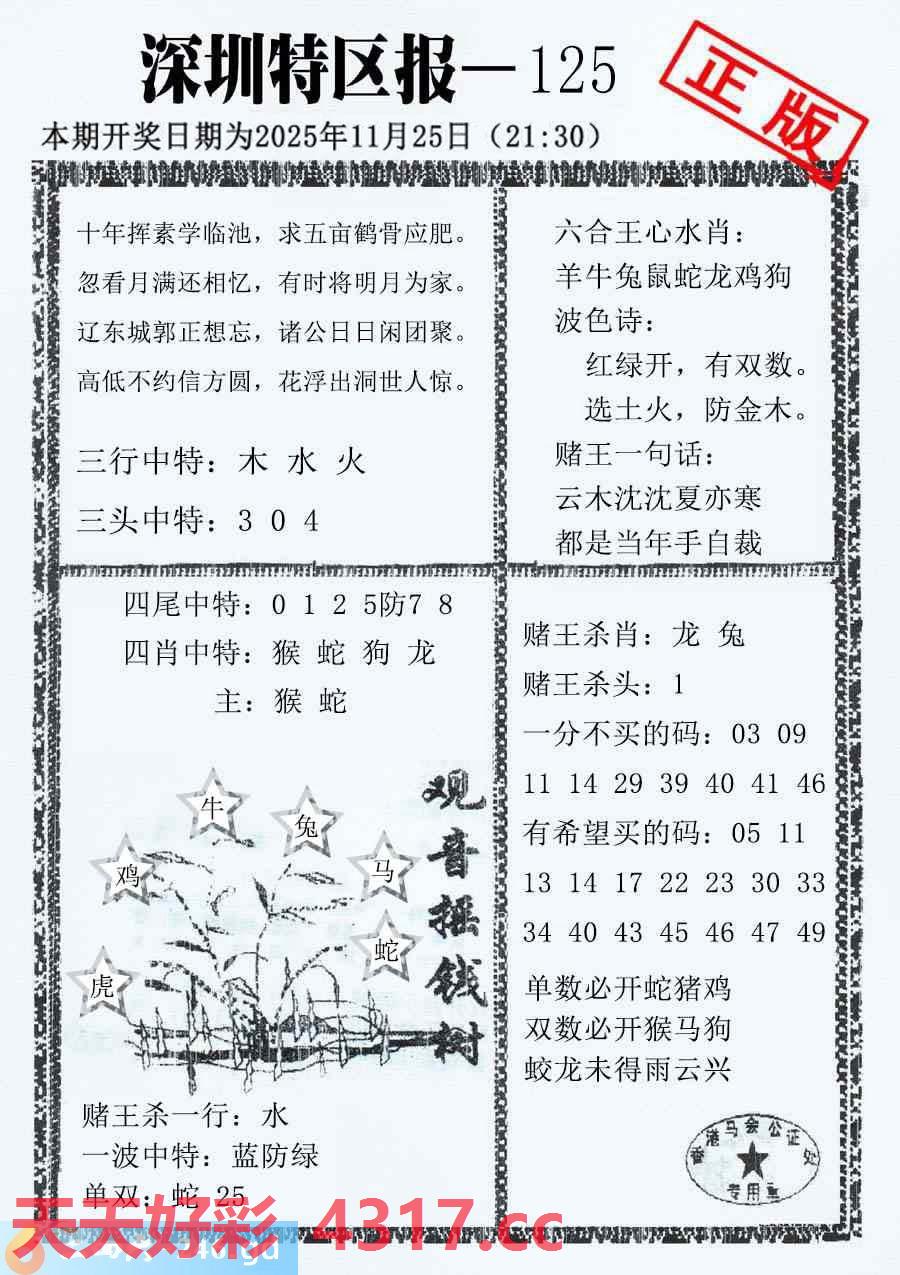 深圳特区报—125
正版
本期开奖日期为2025年11月25日（21:30）
十年挥素学临池，求五亩鹤骨应肥。
忽看月满还相忆，有时将明月为家。
辽东城郭正想忘，诸公日日闲团聚。
高低不约信方圆，花浮出洞世人惊。
三行中特：木 水 火
三头中特：3 0 4
六合王心水肖：
羊牛兔鼠蛇龙鸡狗
波色诗：
红绿开，有双数。
选土火，防金木。
赌王一句话：
云木沈沈夏亦寒
都是当年手自裁
四尾中特：0 1 2 5防7 8
四肖中特：猴 蛇 狗 龙
主：猴 蛇
牛
兔
鸡
马
蛇
虎
观音摇钱树
赌王杀一行：水
一波中特：蓝防绿
单双：蛇 25
赌王杀肖：龙 兔
赌王杀头：1
一分不买的码：03 09
11 14 29 39 40 41 46
有希望买的码：05 11
13 14 17 22 23 30 33
34 40 43 45 46 47 49
单数必开蛇猪鸡
双数必开猴马狗
蛟龙未得雨云兴
香港马会公证处
专用章
天天好彩 4317.cc